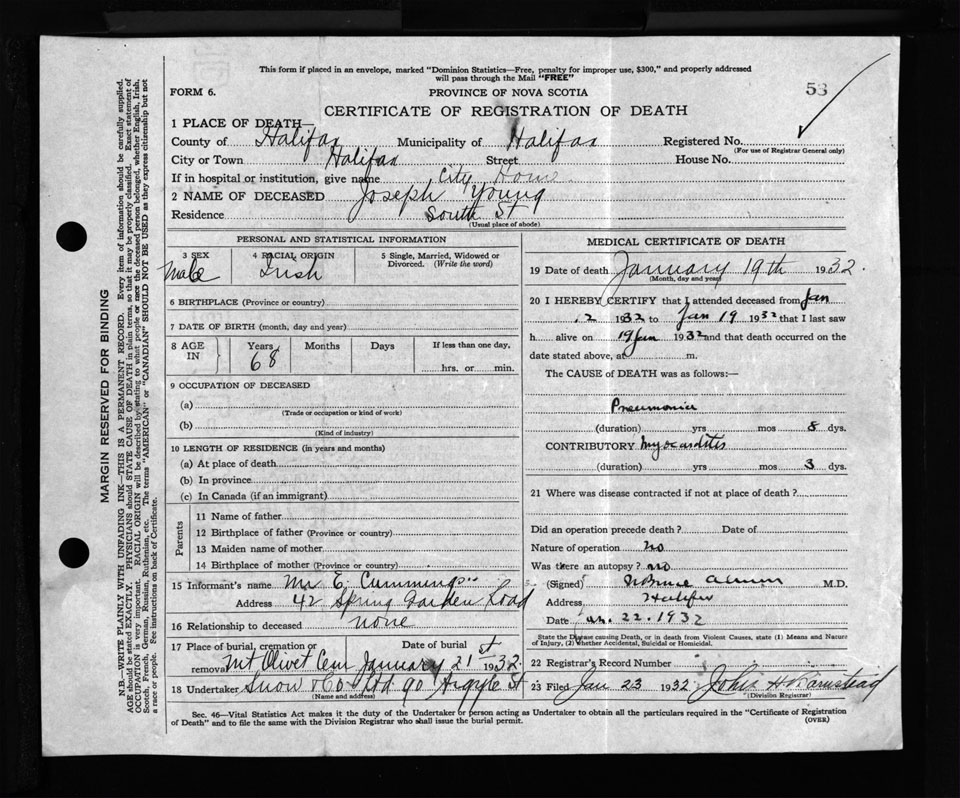 This form if placed in an envelope, marked "Dominion Statistics—Free, penalty for improper use, $300," and properly addressed
will pass through the Mail "FREE"
FORM 6.
PROVINCE OF NOVA SCOTIA
53
CERTIFICATE OF REGISTRATION OF DEATH
1 PLACE OF DEATH—
County of Halifax Municipality of Halifax Registered No.
(For use of Registrar General only)
City or Town Halifax Street House No.
If in hospital or institution, give name City Home
2 NAME OF DECEASED Joseph Young
Residence South St
(Usual place of abode)
PERSONAL AND STATISTICAL INFORMATION
3 SEX 4 RACIAL ORIGIN 5 Single, Married, Widowed or
Divorced. (Write the word)
Male Irish
6 BIRTHPLACE (Province or country)
7 DATE OF BIRTH (month, day and year)
8 AGE IN Years Months Days If less than one day,
68 hrs. or min.
9 OCCUPATION OF DECEASED
(a)
(Trade or occupation or kind of work)
(b)
(Kind of industry)
10 LENGTH OF RESIDENCE (in years and months)
(a) At place of death
(b) In province
(c) In Canada (if an immigrant)
Parents
11 Name of father
12 Birthplace of father (Province or country)
13 Maiden name of mother
14 Birthplace of mother (Province or country)
15 Informant's name Mr E. Cummings
Address 42 Spring Garden Road
16 Relationship to deceased none
17 Place of burial, cremation or Date of burial
removal Mt Olivet Cem January 21st 1932
18 Undertaker Snow & Co Ltd 90 Argyle St
(Name and address)
MEDICAL CERTIFICATE OF DEATH
19 Date of death January 19th 1932.
(Month, day and year)
20 I HEREBY CERTIFY that I attended deceased from Jan
2 1932 to Jan 19 1932 that I last saw
h alive on 19 Jan 1932 and that death occurred on the
date stated above, at m.
The CAUSE of DEATH was as follows:—
Pneumonia
(duration) yrs mos 8 dys.
CONTRIBUTORY Myocarditis
(duration) yrs mos 3 dys.
21 Where was disease contracted if not at place of death?
Did an operation precede death? Date of
Nature of operation no
Was there an autopsy? no
(Signed) M.D.
Address Halifax
Date Jan. 22. 1932
State the Disease causing Death, or in death from Violent Causes, state (1) Means and Nature
of Injury, (2) Whether Accidental, Suicidal or Homicidal.
22 Registrar's Record Number
23 Filed Jan 23 1932 John
(Division Registrar)
Sec. 46—Vital Statistics Act makes it the duty of the Undertaker or person acting as Undertaker to obtain all the particulars required in the "Certificate of Registration
of Death" and to file the same with the Division Registrar who shall issue the burial permit.
(OVER)
MARGIN RESERVED FOR BINDING
N.B.—WRITE PLAINLY WITH UNFADING INK—THIS IS A PERMANENT RECORD. Every item of information should be carefully supplied.
AGE should be stated EXACTLY. PHYSICIANS should STATE CAUSE OF DEATH in plain terms, so that it may be properly classified. Exact statement of
OCCUPATION is very important. RACIAL ORIGIN will be described by stating to what people or race the deceased person belonged, whether English, Irish,
Scotch, French, German, Russian, Ruthenian, etc. The terms "AMERICAN" or "CANADIAN" SHOULD NOT BE USED as they express citizenship but not
a race or people. See instructions on back of Certificate.